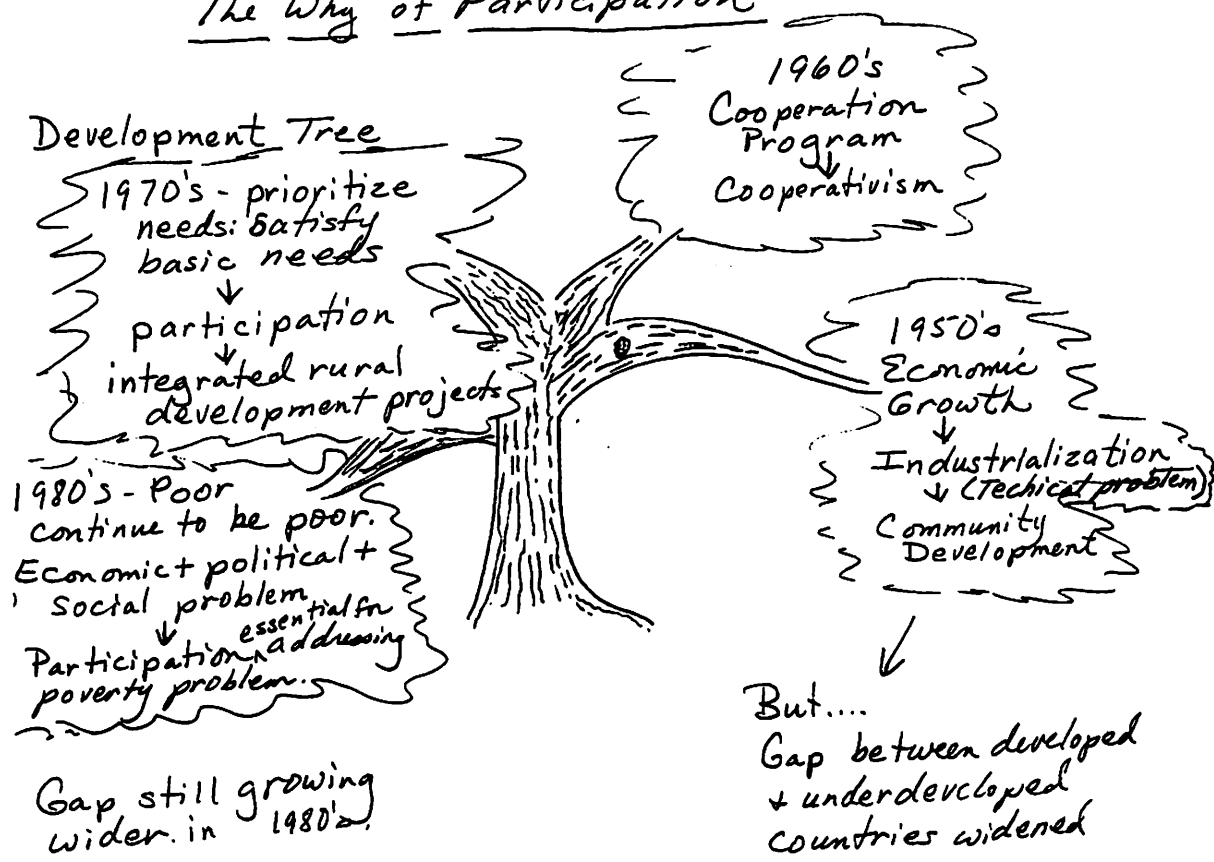 The Why of Participation
Development Tree
1970's - prioritize
needs: Satisfy
basic needs
↓
participation
↓
integrated rural
development projects
1960's
Cooperation
Program
↓
Cooperativism
1950's
Economic
Growth
↓
Industrialization
↓ (Techical problem)
Community
Development
1980's - Poor
continue to be poor.
Economic + political +
social problem
↓
Participation ^ essential for addressing
poverty problem.
Gap still growing
wider in 1980's.
But....
Gap between developed
+ underdeveloped
countries widened